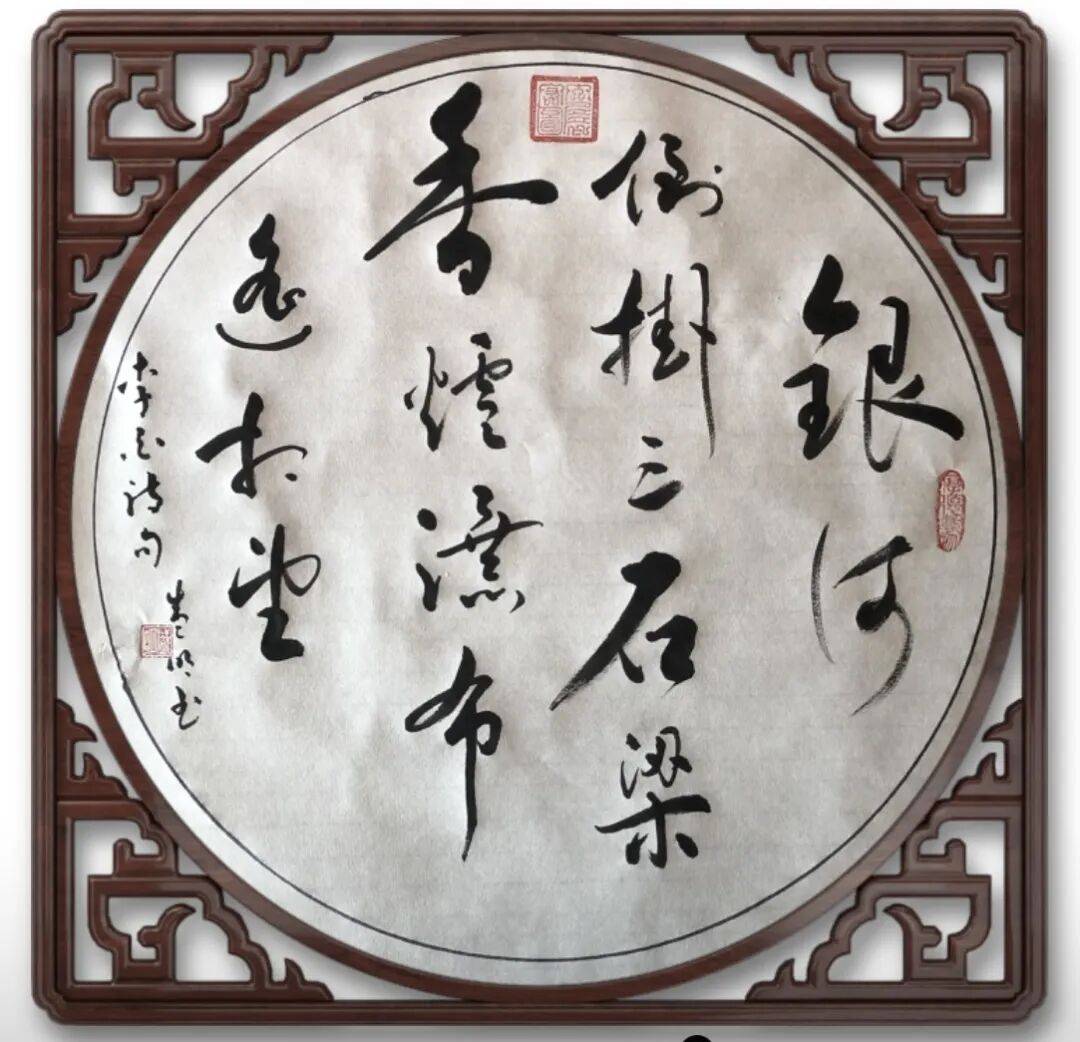 銀河
倒掛三石梁
香爐瀑布
遙相望
李白詩句